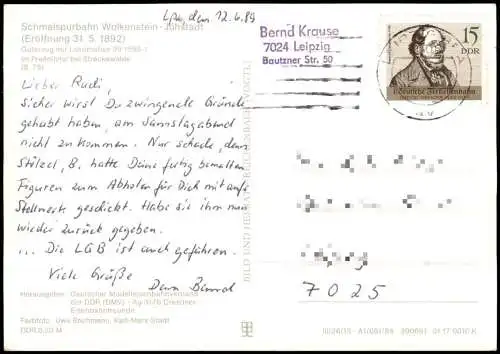 Lpz, den 12.6.89
Schmalspurbahn Wolkenstein-Jöhstadt
(Eröffnung 31. 5. 1892)
Güterzug mit Lokomotive 99
im Preßnitztal bei Streckewalde
(S. 79)
Bernd Krause
7024 Leipzig
Bautzner Str. 50
15
DDR
Deutsche Ferneisenbahn
Lieber Rudi,
sicher wirst Du zwingende Gründe
gehabt haben, am Samstagabend
nicht zu kommen. Nur schade, denn
Stölzel, B. hatte Deine fertig bemalten
Figuren zum Abholen für Dich mit aufs
Stellwerk geschickt. Habe sie ihm nun
wieder zurück gegeben.
... Die LGB ist auch gefahren.
Viele Grüße
Dein Bernd
7025
BILD UND HEIMAT REICHENBACH (VOGTL)
Herausgeber: Deutscher Modelleisenbahnverband
der DDR (DMV) - Ag 3/76 Dresdner
Eisenbahnfreunde
Farbfoto: Uwe Bachmann, Karl-Marx-Stadt
DDR 0,20 M